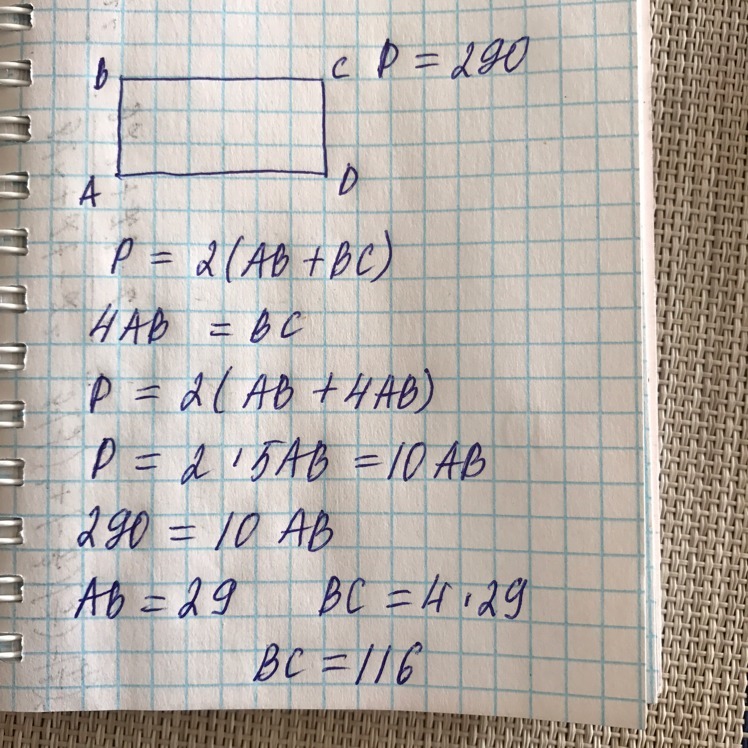 B C P = 290
A D
P = 2(AB + BC)
4AB = BC
P = 2( AB + 4AB)
P = 2 · 5AB = 10 AB
290 = 10 AB
AB = 29 BC = 4 · 29
BC = 116